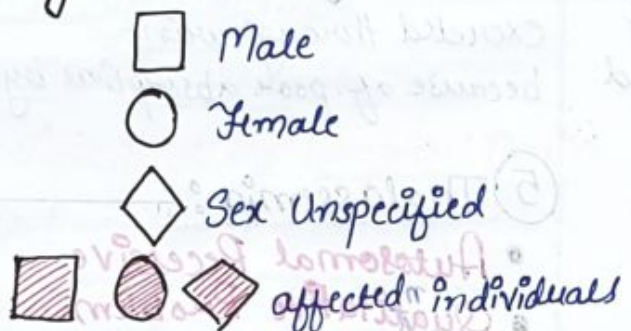 Male
Female
Sex Unspecified
affected individuals